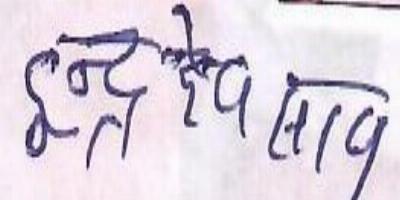 इन्द्र देव साव